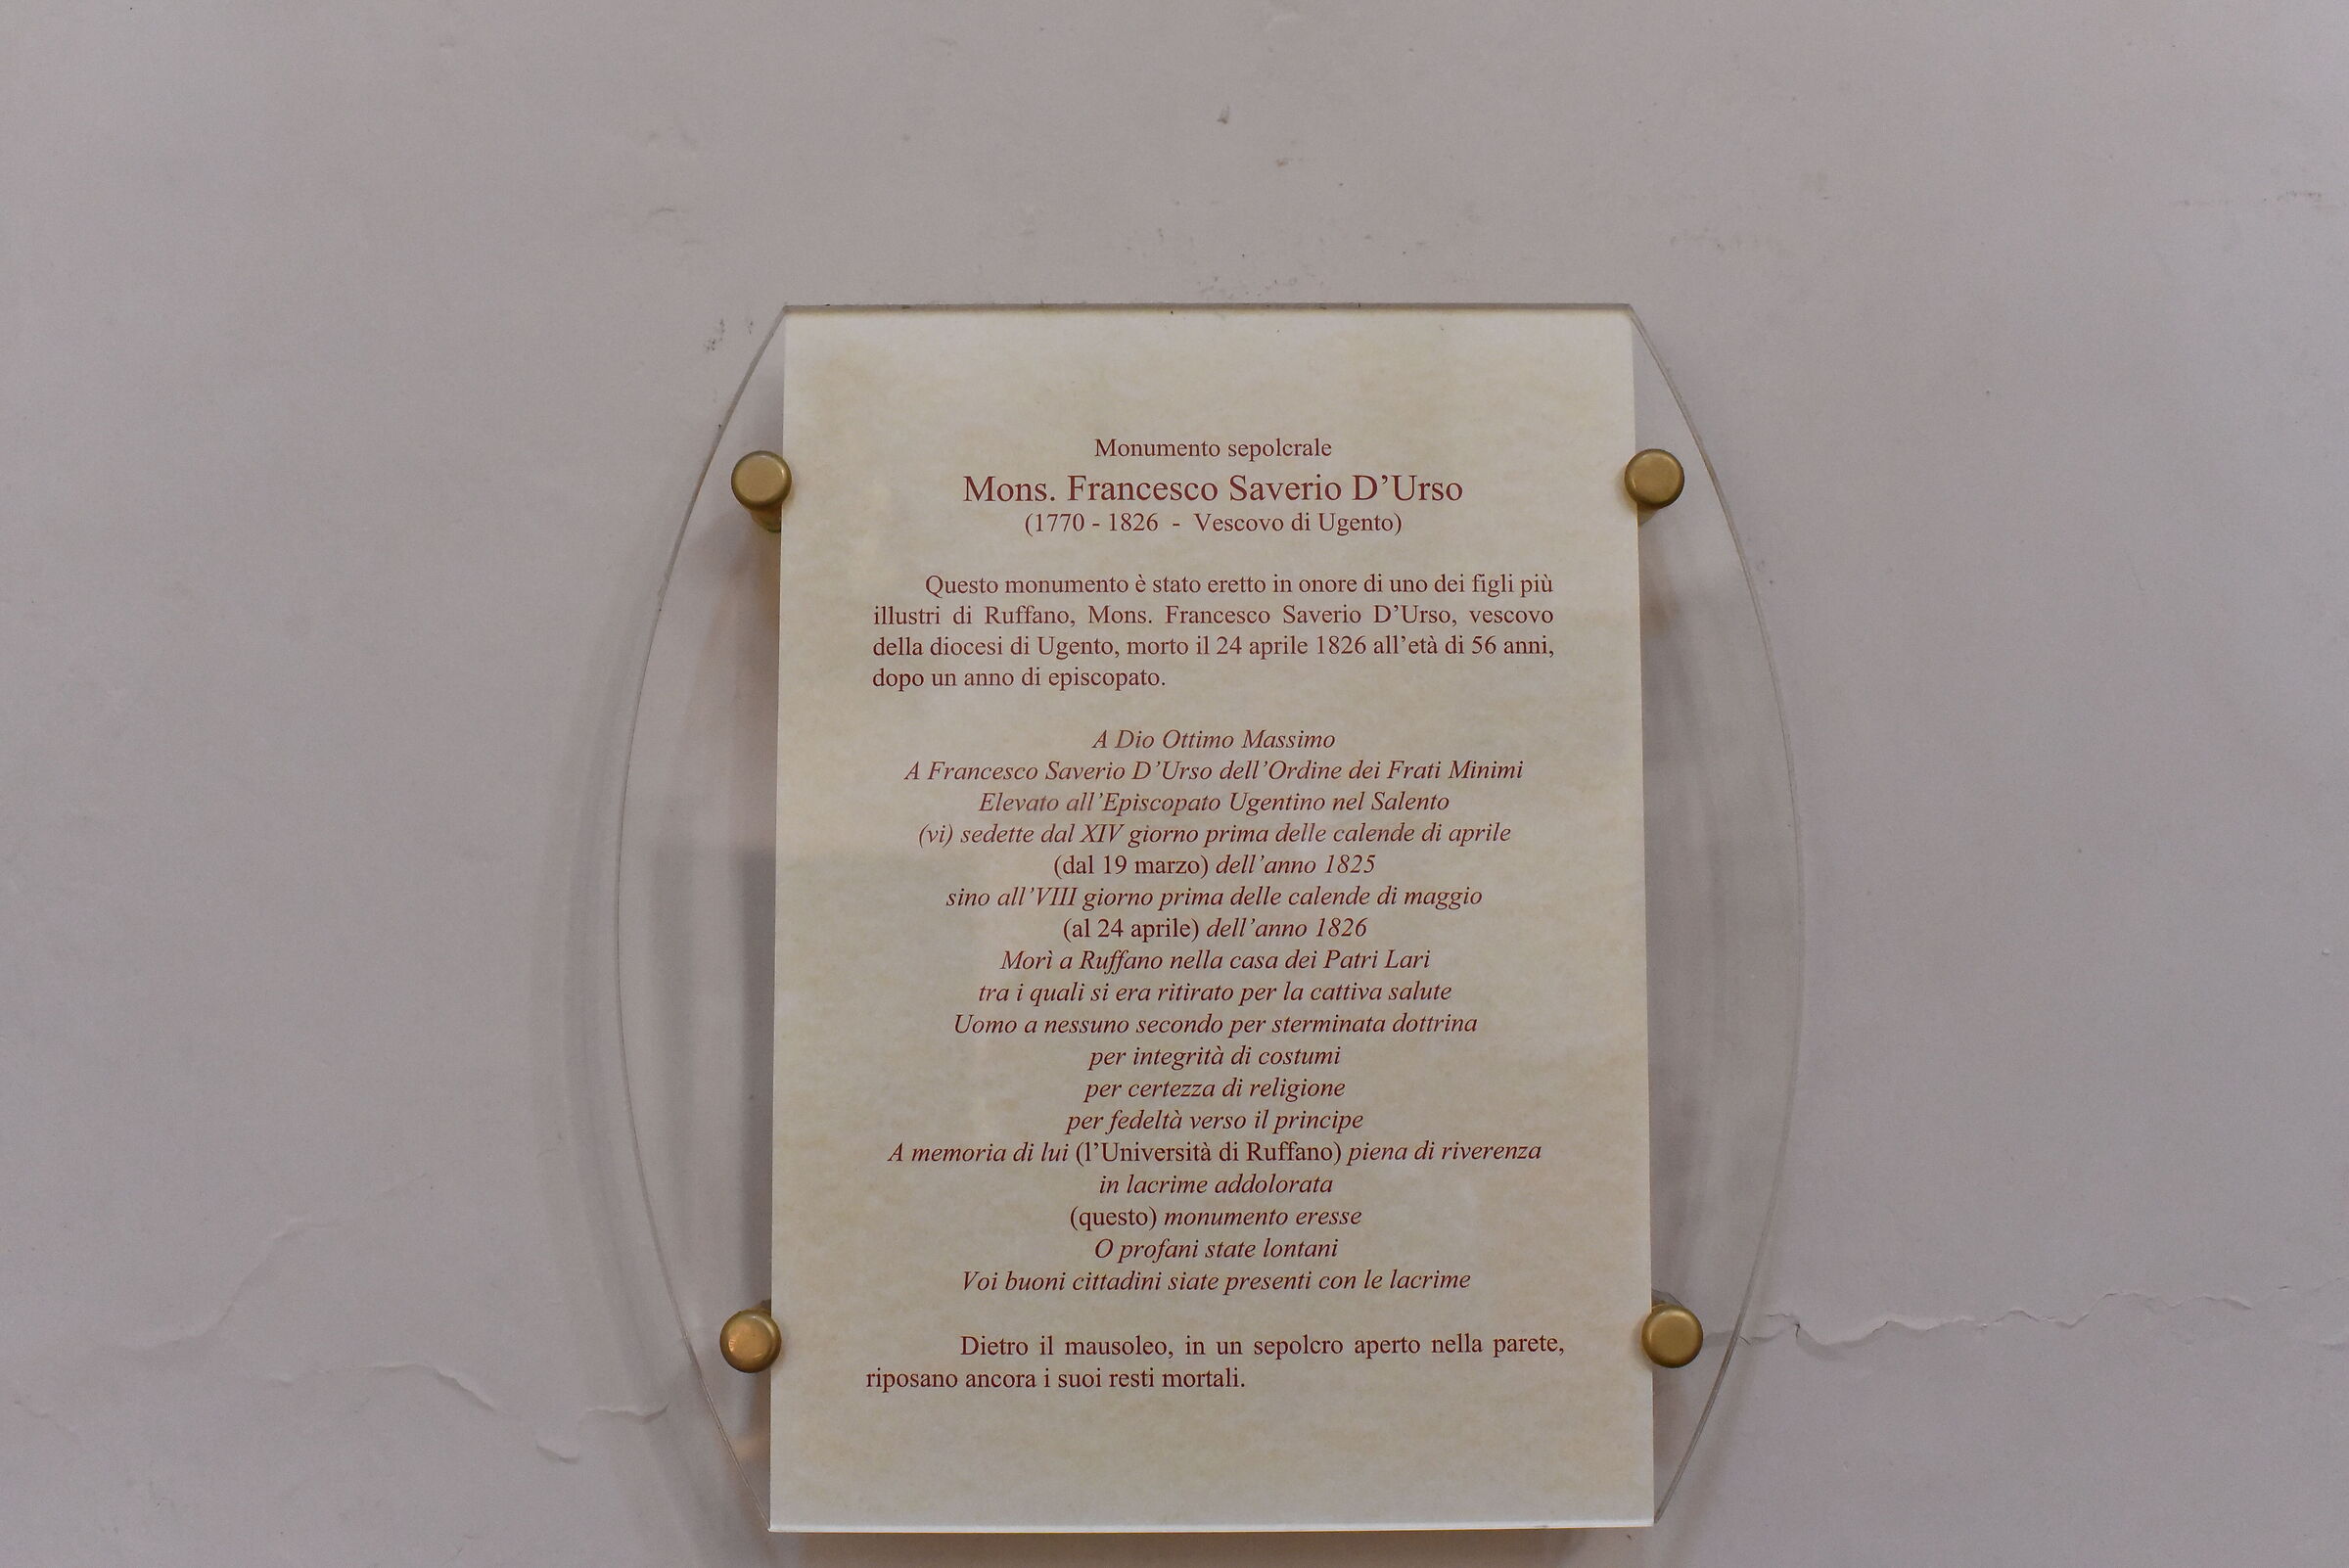 Monumento sepolcrale
Mons. Francesco Saverio D’Urso
(1770 - 1826 - Vescovo di Ugento)
Questo monumento è stato eretto in onore di uno dei figli più
illustri di Ruffano, Mons. Francesco Saverio D’Urso, vescovo
della diocesi di Ugento, morto il 24 aprile 1826 all’età di 56 anni,
dopo un anno di episcopato.
A Dio Ottimo Massimo
A Francesco Saverio D’Urso dell’Ordine dei Frati Minimi
Elevato all’Episcopato Ugentino nel Salento
(vi) sedette dal XIV giorno prima delle calende di aprile
(dal 19 marzo) dell’anno 1825
sino all’VIII giorno prima delle calende di maggio
(al 24 aprile) dell’anno 1826
Morì a Ruffano nella casa dei Patri Lari
tra i quali si era ritirato per la cattiva salute
Uomo a nessuno secondo per sterminata dottrina
per integrità di costumi
per certezza di religione
per fedeltà verso il principe
A memoria di lui (l’Università di Ruffano) piena di riverenza
in lacrime addolorata
(questo) monumento eresse
O profani state lontani
Voi buoni cittadini siate presenti con le lacrime
Dietro il mausoleo, in un sepolcro aperto nella parete,
riposano ancora i suoi resti mortali.